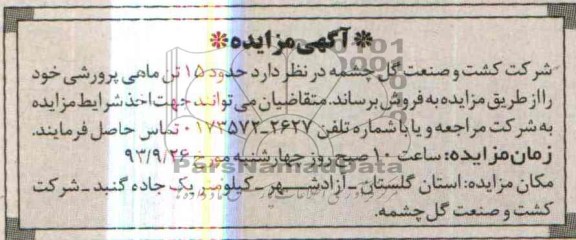 ❊ آگهی مزایده ❊
شرکت کشت و صنعت گل چشمه در نظر دارد حدود ۱۵ تن ماهی پرورشی خود
را از طریق مزایده به فروش برساند. متقاضیان می توانند جهت اخذ شرایط مزایده
به شرکت مراجعه و یا با شماره تلفن ۲۶۲۷-۰۱۷۳۵۷۲ تماس حاصل فرمایند.
زمان مزایده: ساعت ۱۰ صبح روز چهارشنبه مورخ ۹۳/۹/۲۶
ParsNamadData
مکان مزایده: استان گلستان - آزادشهر - کیلومتر یک جاده گنبد - شرکت
کشت و صنعت گل چشمه.